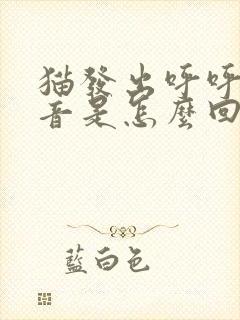 猫發出呼呼
音是怎麼回
藍白色